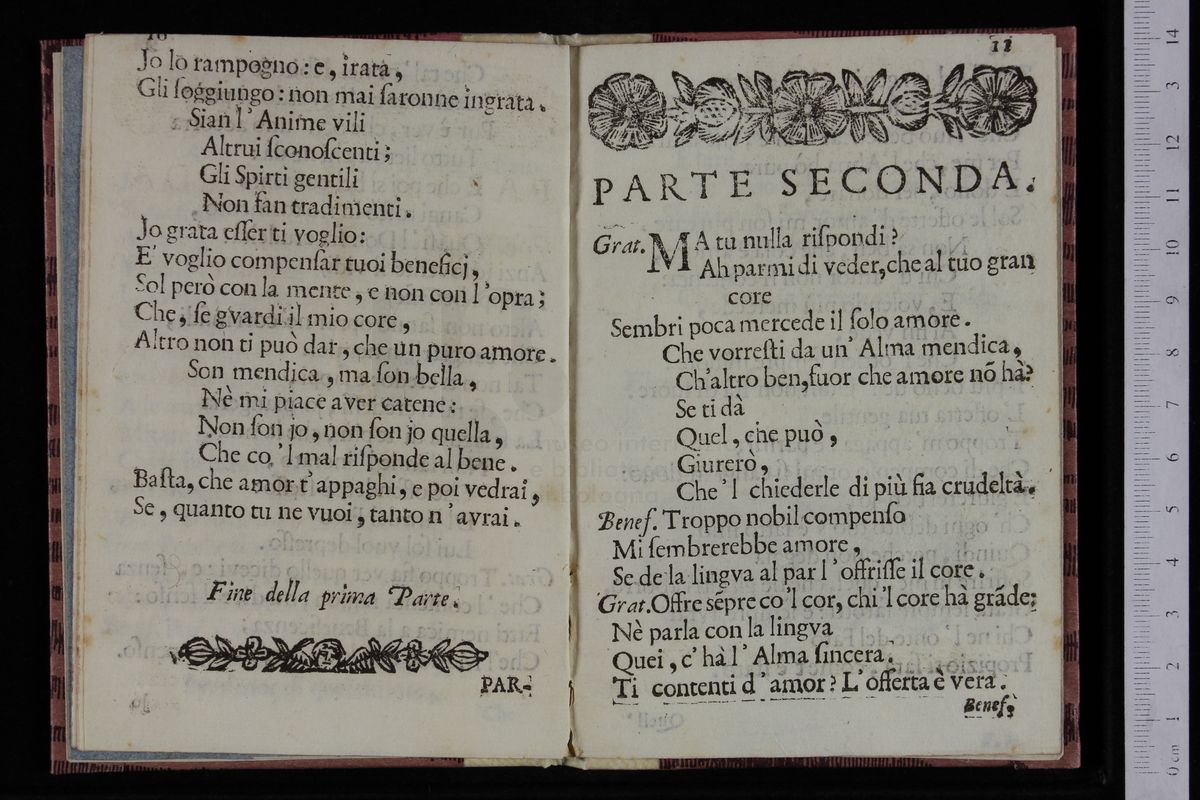 10
Jo lo rampogno: e, irata,
Gli ſoggiungo: non mai ſaronne ingrata.
Sian l'Anime vili
Altrui ſconoſcenti;
Gli Spirti gentili
Non fan tradimenti.
Jo grata eſſer ti voglio:
E' voglio compenſar tuoi beneficj,
Sol però con la mente, e non con l'opra;
Che, ſe gvardi il mio core,
Altro non ti può dar, che un puro amore.
Son mendica, ma ſon bella,
Nè mi piace aver catene:
Non ſon jo, non ſon jo quella,
Che co 'l mal riſponde al bene.
Baſta, che amor t'appaghi, e poi vedrai,
Se, quanto tu ne vuoi, tanto n'avrai.
Fine della prima Parte.
PAR-
11
PARTE SECONDA.
Grat. MA tu nulla riſpondi?
Ah parmi di veder, che al tuo gran
core
Sembri poca mercede il ſolo amore.
Che vorreſti da un' Alma mendica,
Ch'altro ben, fuor che amore nõ hà?
Se ti dà
Quel, che può,
Giurerò,
Che 'l chiederle di più fia crudeltà.
Benef. Troppo nobil compenſo
Mi ſembrerebbe amore,
Se de la lingva al par l'offriſſe il core.
Grat. Offre sẽpre co 'l cor, chi 'l core hà grãde;
Nè parla con la lingva
Quei, c'hà l'Alma ſincera.
Ti contenti d'amor? L'offerta è vera.
Benef.